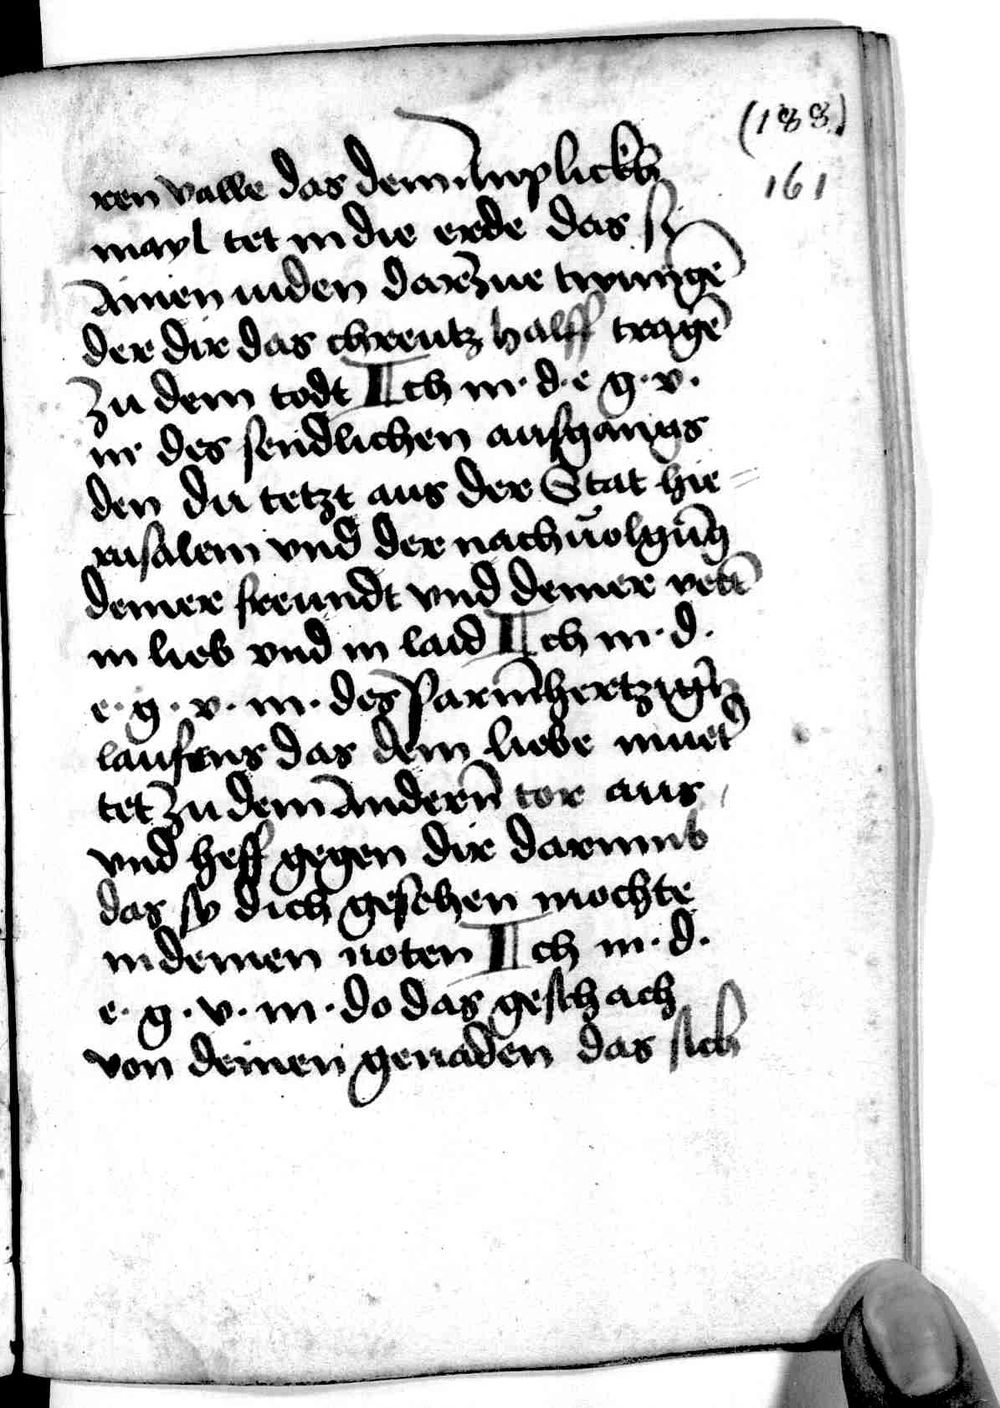 (188)
161
ren valle das dein Anplickh
mayl tet in die erde das sy
Ainen iuden darzue twungē
der dir das chreutz halff tragē
Zu dem todt Ich m· d· e g· v·
m des sendlichen ausgangs
den du tetzt aus der Stat hie=
rusalem vnd der nachuolgūg
deiner freundt vnd deiner veīt
in lieb vnd in laid Ich m· d·
e· g· v· m· des Parmhertzigñ
laufens das dein liebe muet̄
tet zu dem Andern̄ tor aus
vnd heff gegen dir darumb
das sy dich gesehen mochte
in deinen noten Ich m· d·
e· g· v· m· do das geschach
von deinen genaden das sich